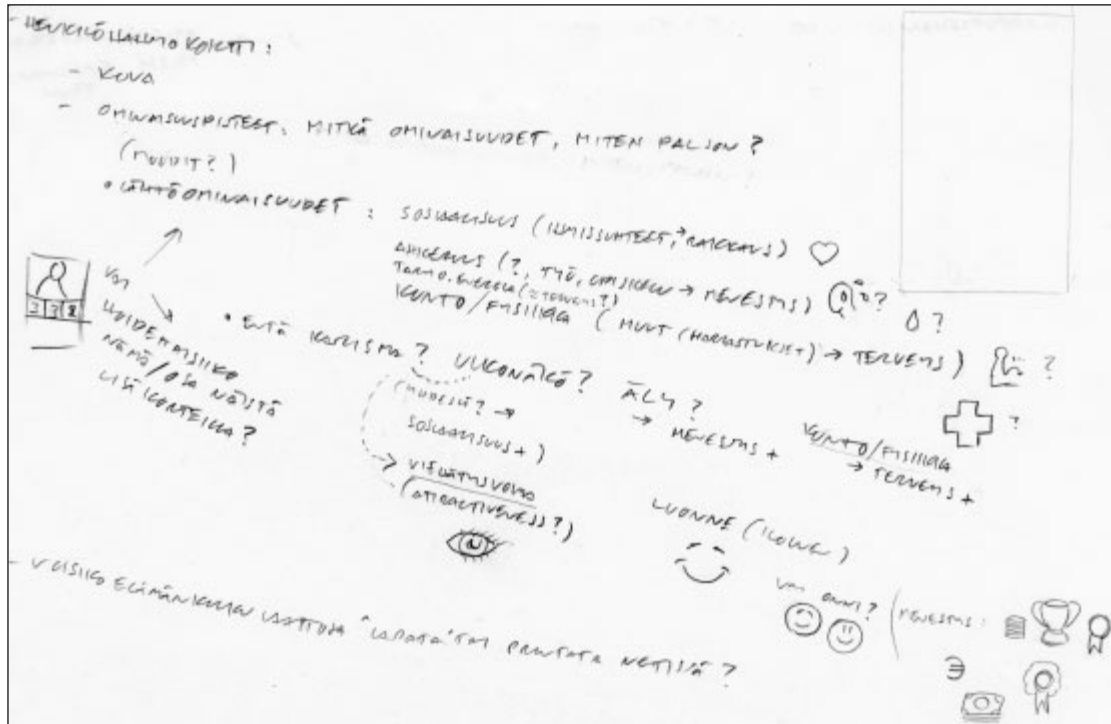 - HENKILÖHAHMOKORTTI:
- KUVA
- OMINAISUUSPISTEET. MITKÄ OMINAISUUDET, MITEN PALJON?
(MUUDIT?)
• LÄHTÖOMINAISUUDET: SOSIAALISUUS (IHMISSUHTEET, → RAKKAUS)
AHKERUUS (?, TYÖ, → MENESTYS) ?
TARMO, ENERGIA (= TERVEYS?)
KUNTO/FYSIIKKA (MUUT (HARRASTUKSET) → TERVEYS) ?
?
2 3 8
VAI
UUDEMAISIKO
NÄMÄ/OSA NÄISTÄ
LISÄKORTEILLA?
• ENTÄ KARISMA? ULKONÄKÖ? ÄLY?
(MUDESTA? →
SOSIAALISUUS +)
→ MENESTYS +
KUNTO/FYSIIKKA
→ TERVEYS +
?
→ VIEHÄTYSVOIMA
(ATTRACTIVENESS?)
LUONNE (ILOINEN)
VAI ONNI? (MENESTYS:
€
- VOISIKO ELÄMÄNKULKU "LADATA" TAI PRINTATA NETISSÄ?